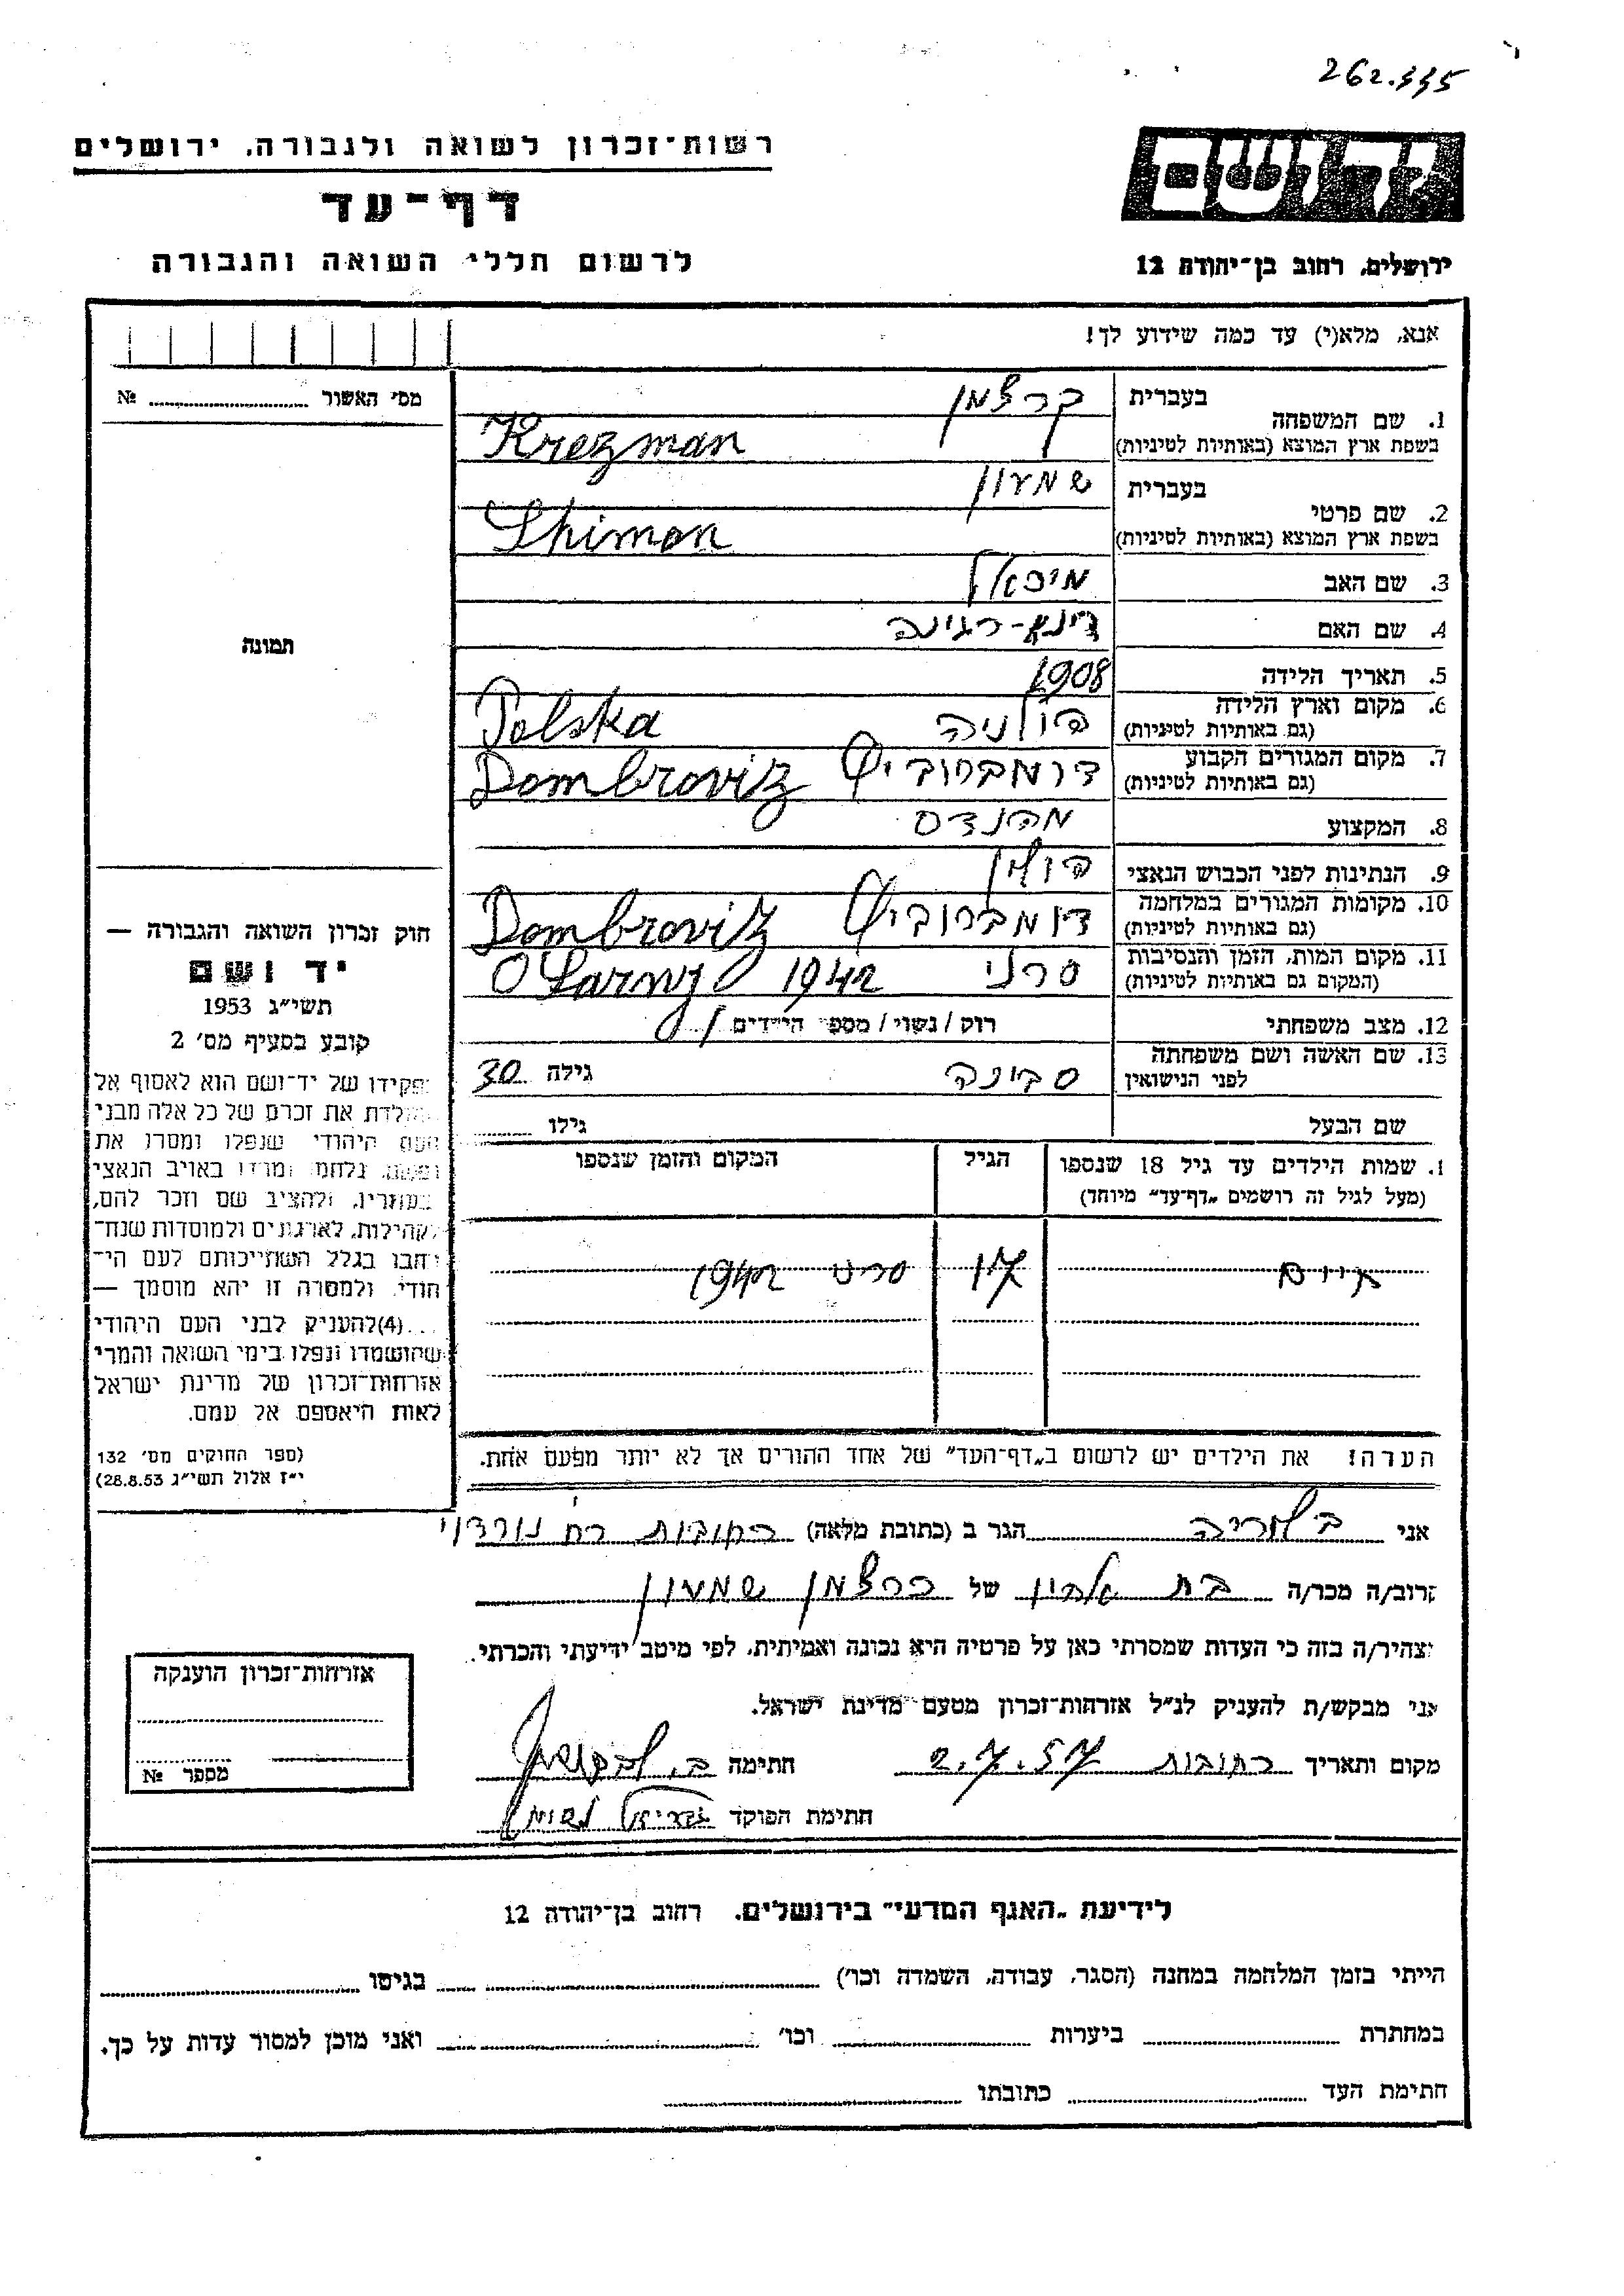 262.335
רשות־זכרון לשואה ולגבורה, ירושלים
יד ושם
דף־עד
לרשום חללי השואה והגבורה
ירושלים, רחוב בן־יהודה 12
אנא, מלא(י) עד כמה שידוע לך!
מס׳ האשור № 
בעברית קרצמן
1. שם המשפחה
בשפת ארץ המוצא (באותיות לטיניות) Krezman
בעברית שמעון
2. שם פרטי
בשפת ארץ המוצא (באותיות לטיניות) Shimon
3. שם האב מיכאל
4. שם האם דינה-רגינה
5. תאריך הלידה 1908
6. מקום וארץ הלידה
(גם באותיות לטיניות) פולניה Polska
7. מקום המגורים הקבוע
(גם באותיות לטיניות) דומברוביץ Dombroviz
8. המקצוע מהנדס
9. הנתינות לפני הכבוש הנאצי פולין
10. מקומות המגורים במלחמה
(גם באותיות לטיניות) דומברוביץ Dombroviz
11. מקום המות, הזמן והנסיבות
(המקום גם באותיות לטיניות) סרני 1942 Sarny
12. מצב משפחתי רוק / נשוי / מספר הילדים 1
13. שם האשה ושם משפחתה
לפני הנישואין סבינה גילה 30
שם הבעל גילו
תמונה
1. שמות הילדים עד גיל 18 שנספו הגיל המקום והזמן שנספו
(מעל לגיל זה רושמים „דף־עד״ מיוחד)
17 סרני 1942
הערה! את הילדים יש לרשום ב„דף־העד״ של אחד ההורים אך לא יותר מפעם אחת.
חוק זכרון השואה והגבורה —
יד ושם
תשי״ג 1953
קובע בסעיף מס׳ 2
תפקידו של יד־ושם הוא לאסוף אל
המולדת את זכרם של כל אלה מבני
העם היהודי שנפלו ומסרו את
נפשם, נלחמו ומרדו באויב הנאצי
ובעוזריו, ולהציב שם וזכר להם,
לקהילות, לארגונים ולמוסדות שנח־
רבו בגלל השתייכותם לעם הי־
הודי, ולמטרה זו יהא מוסמך —
...(4)להעניק לבני העם היהודי
שהושמדו ונפלו בימי השואה והמרי
אזרחות־זכרון של מדינת ישראל
לאות היאספם אל עמם.
(ספר החוקים מס׳ 132
י״ז אלול תשי״ג 28.8.53)
אני הגר ב (כתובת מלאה) רחובות רח נורדוי
קרוב/ה מכר/ה בת של קרצמן שמעון
מצהיר/ה בזה כי העדות שמסרתי כאן על פרטיה היא נכונה ואמיתית, לפי מיטב ידיעתי והכרתי.
אני מבקש/ת להעניק לנ״ל אזרחות־זכרון מטעם מדינת ישראל.
מקום ותאריך רחובות 2.7.57 חתימה
חתימת הפוקד
אזרחות־זכרון הוענקה
מספר №
לידיעת „האגף המדעי״ בירושלים, רחוב בן־יהודה 12
הייתי בזמן המלחמה במחנה (הסגר, עבודה, השמדה וכו׳) בגיטו
במחתרת ביערות וכו׳ ואני מוכן למסור עדות על כך.
חתימת העד כתובתו